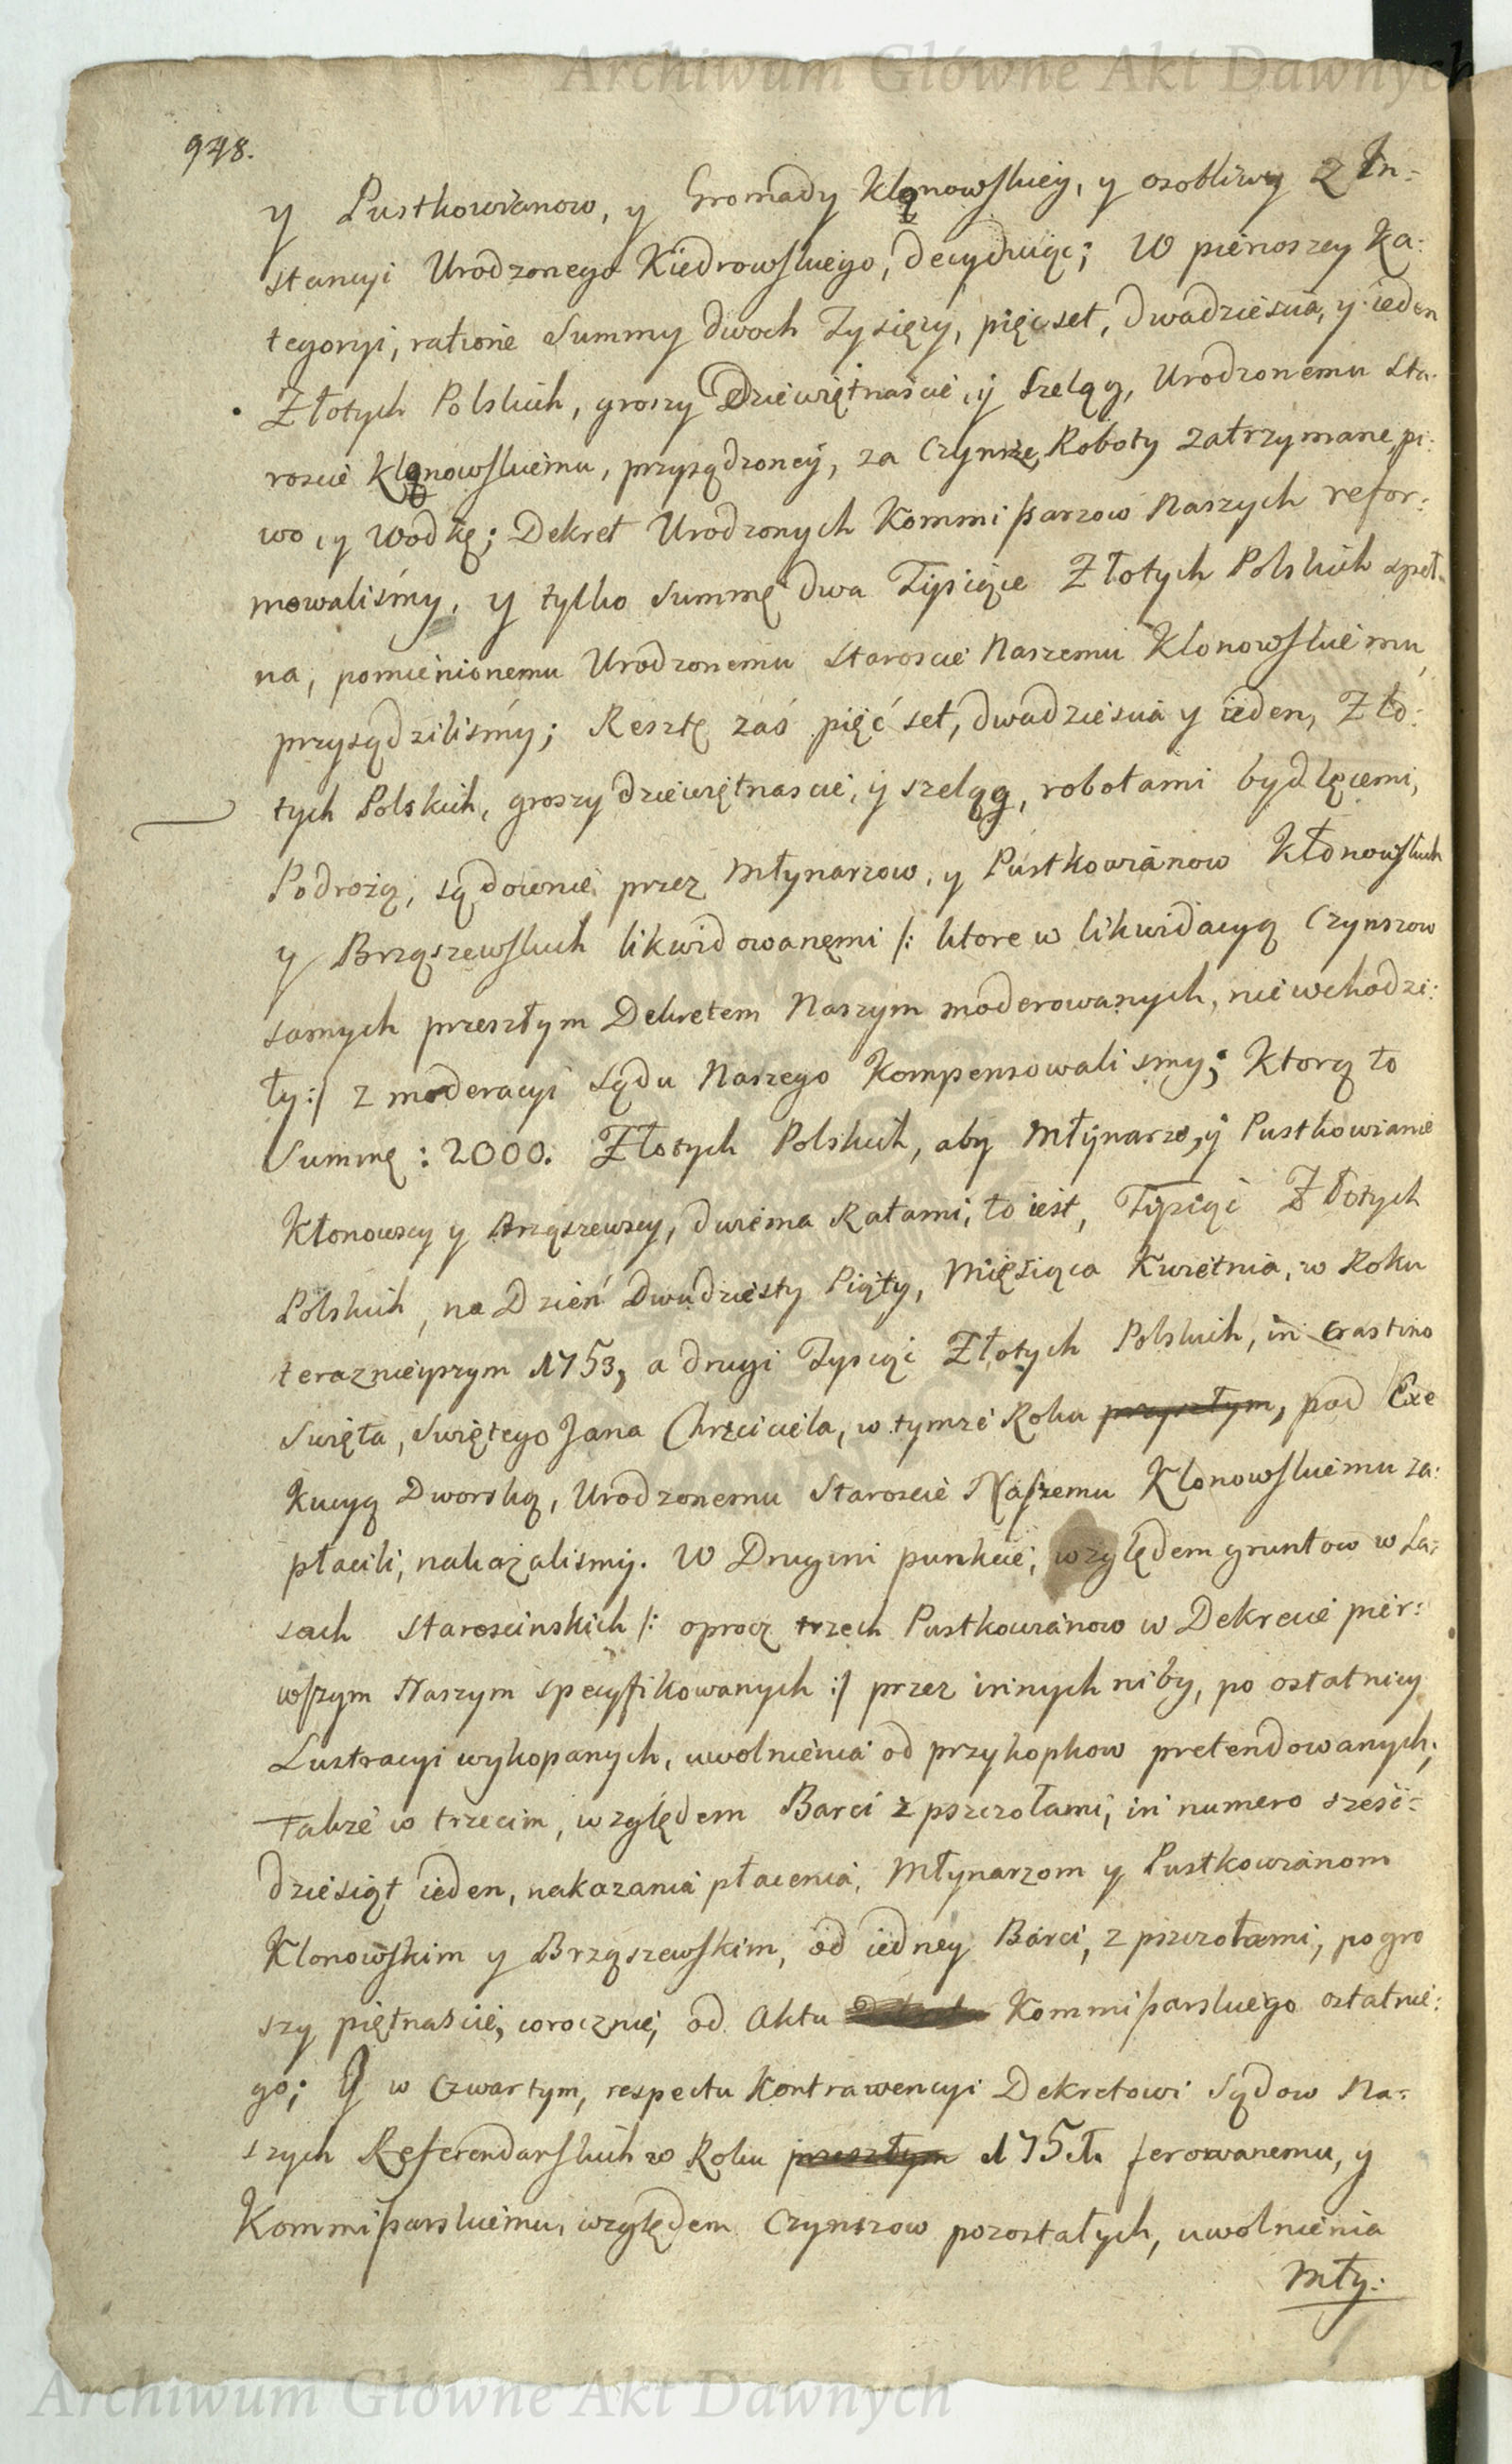 Archiwum Główne Akt Dawnych
948.
y Pustkowianow, y Gromady Klonowskiey, y osobliwey z In=
stancyi Urodzonego Kiedrowskiego, decyduiąc; W pierwszey Ka:
tegoryi, ratione Summy dwoch Tysięcy, pięcset, dwadziescia, y ieden
Złotych Polskich, groszy Dziewiętnascie, y Szeląg, Urodzonemu Sta:
roscie Klonowskiemu, przysądzoney, za Czynsze, Roboty zatrzymane, pi:
wo, y Wodkę; Dekret Urodzonych Kommißarzow Naszych refor:
mowaliśmy, y tylko Summę dwa Tysiące Złotych Polskich zpeł:
na, pomienionemu Urodzonemu Staroscie Naszemu Klonowskiemu,
przysądziliśmy; Resztę zaś pięćset, dwadziescia y ieden, Zło:
tych Polskich, groszy dziewiętnascie, y szeląg, robotami bydlęcemi,
Podrożą, sądownie przez Młynarzow, y Pustkowianow Kłonowskich
y Brząszewskich likwidowanemi /: ktore w likwidacyą Czynszow
samych przeszłym Dekretem Naszym moderowanych, nie wchodzi:
ły :/ z moderacyi Sądu Naszego Kompensowalismy; Ktorą to
Summę : 2000. Złotych Polskich, aby Młynarze, y Pustkowianie
Kłonowscy y Brząszewscy, dwiema Ratami, to iest, Tysiąc Złotych
Polskich, na Dzień Dwudziesty Piąty, Miesiąca Kwietnia, w Roku
teraznieyszym 1753, a drugi Tysiąc Złotych Polskich, in Crastino
Swięta, Swiętego Jana Chrzciciela, w tymze Roku przyszłym, pod Exe
kucyą Dworską, Urodzonemu Staroscie Naszemu Klonowskiemu za:
płacili, nakazalismy. W Drugim punkcie, względem gruntow w La:
sach Staroscinskich /: oprocz trzech Pustkowianow w Dekrecie pier:
wszym Naszym specyfikowanych :/ przez innych niby, po ostatniey
Lustracyi wykopanych, uwolnienia od przykopkow pretendowanych;
Takze w trzecim, względem Barci z pszczołami, in numero szesc=
dziesiąt ieden, nakazania płacenia, Młynarzom y Pustkowianom
Klonowskim y Brząszewskim, od iedney Barci, z pszczołami, po gro
szy piętnascie, corocznie, od Aktu Kommißarskiego ostatnie:
go; Y w Czwartym, respectu Kontrawencyi Dekretowi Sądow Na=
szych Referendarskich w Roku przeszłym 1751. ferowanemu, y
Kommißarskiemu, względem Czynszow pozostałych, uwolnienia
Mły:
Archiwum Główne Akt Dawnych